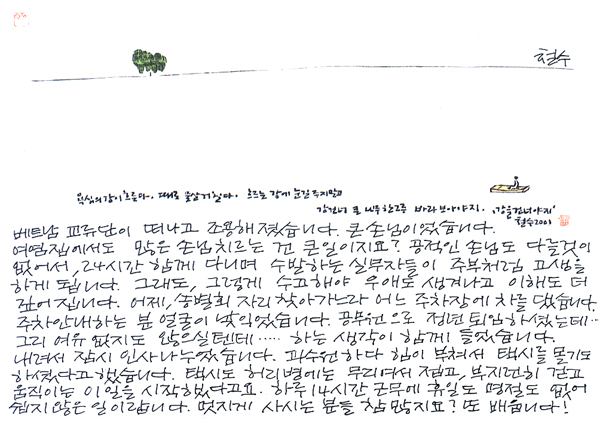 철수
욕심의 강이 흐른다. 때로 물살 거칠다. 흐르는 강에 눈길 주지 말고
강 건너 큰 나무 한 그루 바라보아야지. '강을 건너야지'
철수 2003
베트남 교류단이 떠나고 조용해졌습니다. 큰 손님이었습니다.
여염집에서도 많은 손님치르는 건 큰 일이지요? 공적인 손님도 다를것이
없어서, 24시간 함께 다니며 수발하는 실무자들이 주부처럼 고생을
하게 됩니다. 그래도, 그렇게 수고해야 우애도 생겨나고 이해도 더
깊어집니다. 어제, 송별회 자리 찾아가느라 어느 주차장에 차를 댔습니다.
주차안내하는 분 얼굴이 낯익었습니다. 공무원으로 정년퇴임하셨는데…
그리 여유 없지도 않으실텐데…… 하는 생각이 함께 들었습니다.
내려서 잠시 인사 나누었습니다. 과수원하다 힘이 부쳐서 택시를 몰기도
하셨다고 했습니다. 택시도 허리병에는 무리여서 접고, 부지런히 걷고
움직이는 이 일을 시작했다고요. 하루 14시간 근무에 휴일도 명절도 없어
쉽지 않은 일이랍니다. 멋지게 사시는 분들 참 많지요? 또 배웁니다!